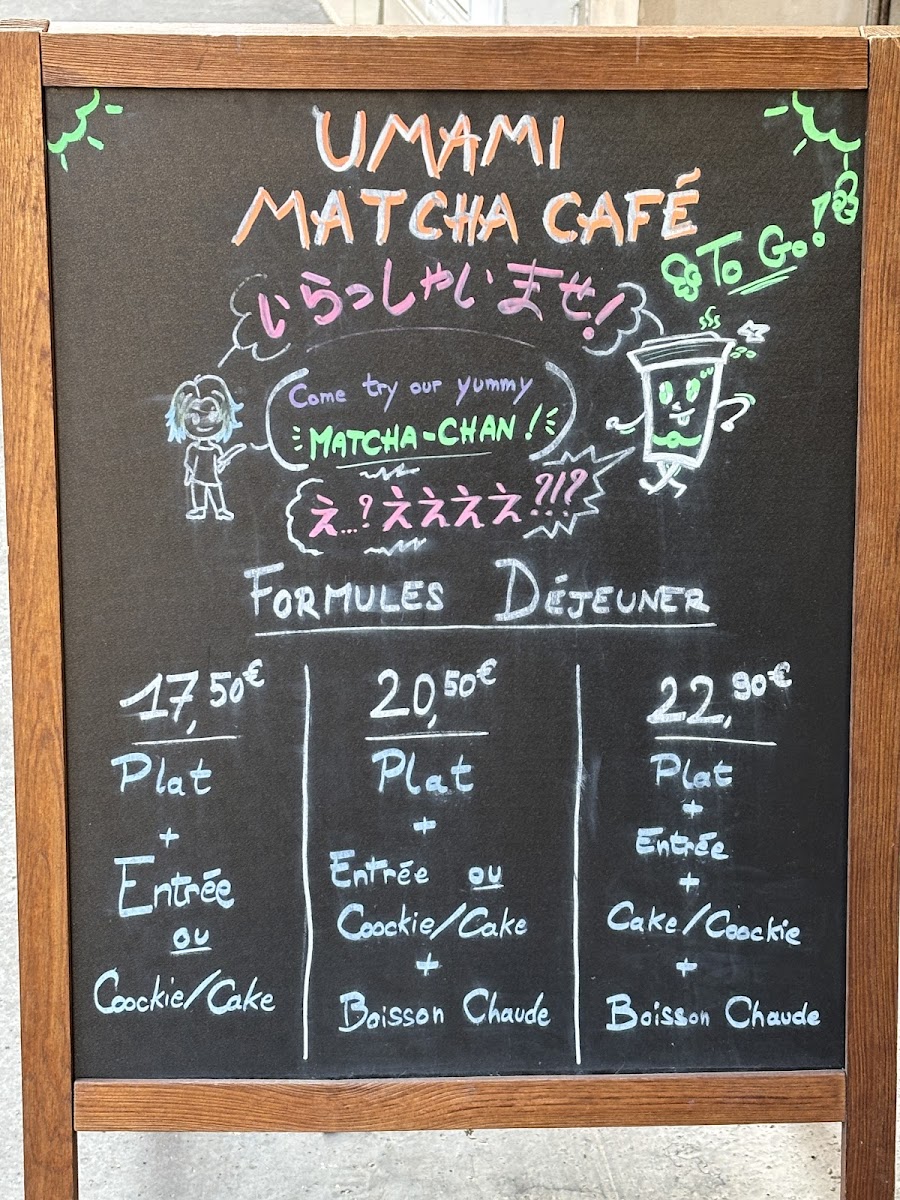 UMAMI
MATCHA CAFÉ
To Go!
いらっしゃいませ!
Come try our yummy
MATCHA-CHAN!
え...?ええええ?!?
FORMULES DÉJEUNER
17,50€
Plat
+
Entrée
ou
Coockie/Cake
20,50€
Plat
+
Entrée ou
Coockie/Cake
+
Boisson Chaude
22,90€
Plat
+
Entrée
+
Cake/Coockie
+
Boisson Chaude